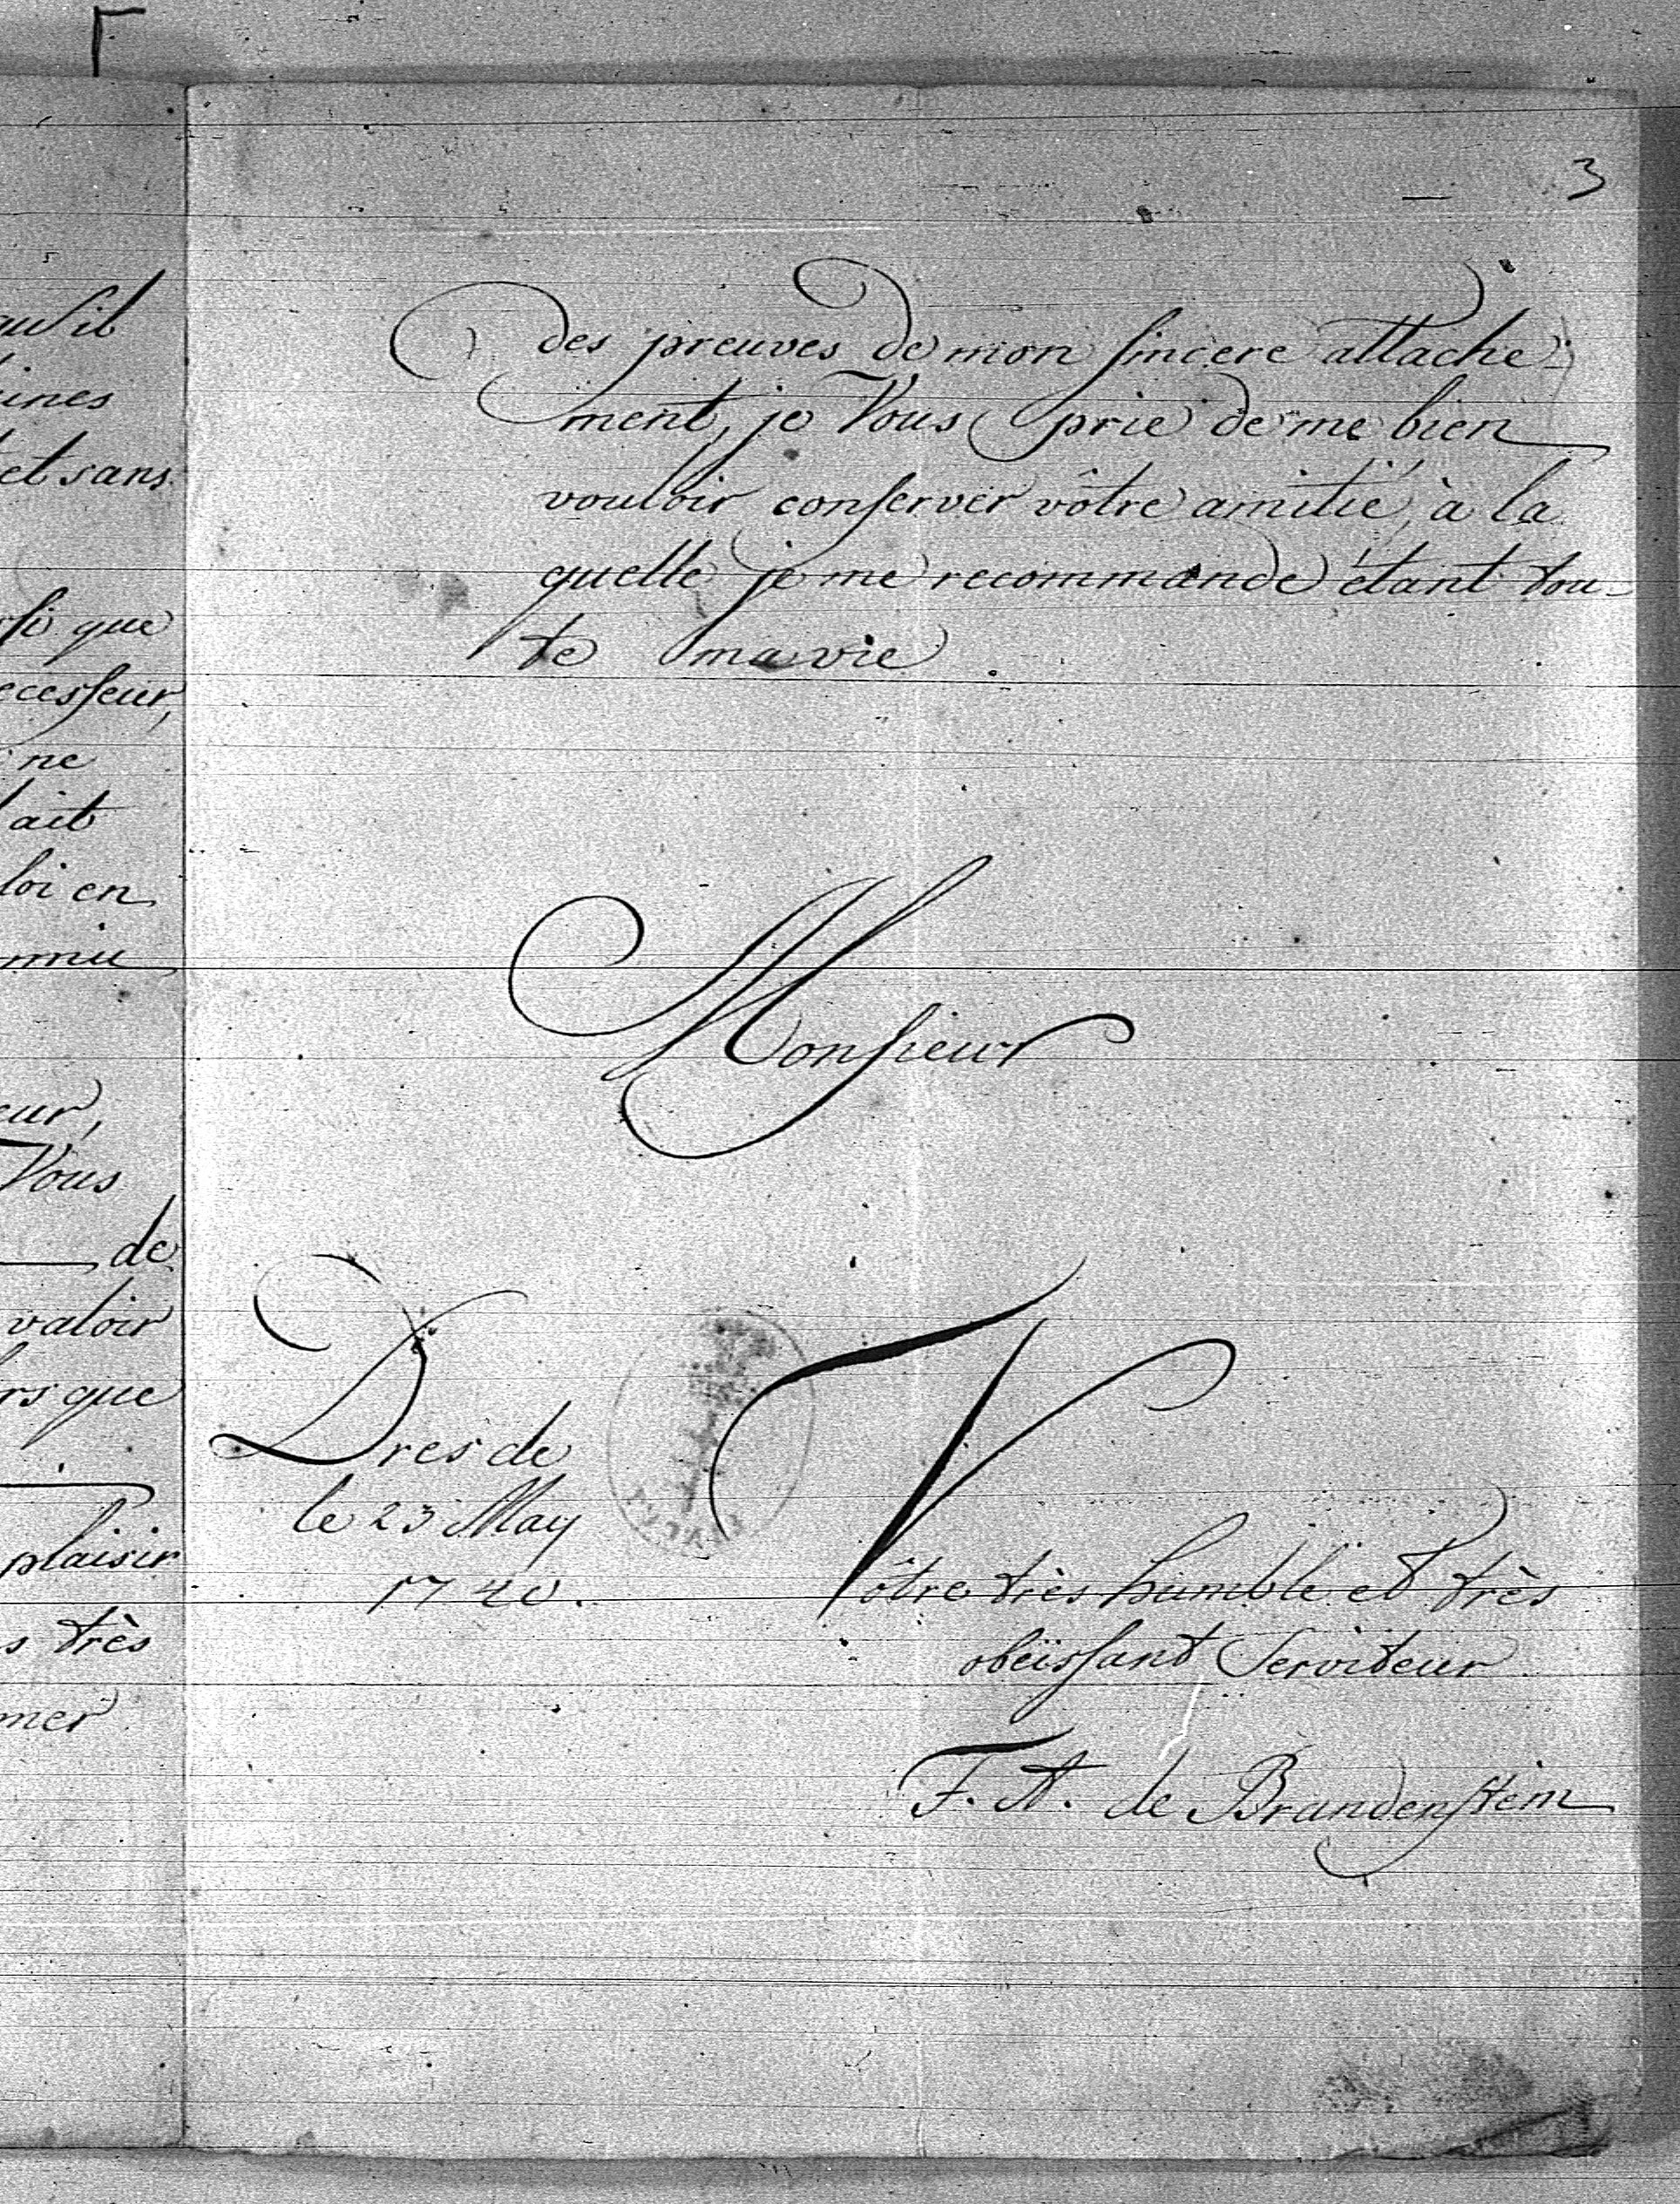 qu'il
ines
et sans
si que
ecesseur,
ne
ait
loi en
eur,
Vous
de
valoir
rs que
plaisir
s très
mer
3
des preuves de mon sincere attache-
ment, je Vous prie de me bien
vouloir conserver vôtre amitié, à la
quelle je me recommande étant tou-
te ma vie
Monsieur
Dresde
le 23 May
1740.
Vôtre très humble et très
obeïssant Serviteur
F. A. de Brandenstein